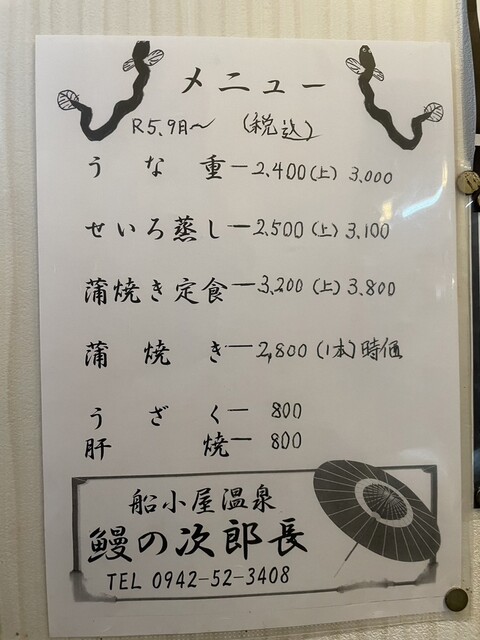 メニュー
R5.9日〜 (税込)
うな重ー2,400(上) 3,000
せいろ蒸しー2,500(上) 3,100
蒲焼き定食ー3,200(上) 3,800
蒲焼きー2,800(1本)時価
うざくー 800
肝焼ー 800
船小屋温泉
鰻の次郎長
TEL 0942-52-3408